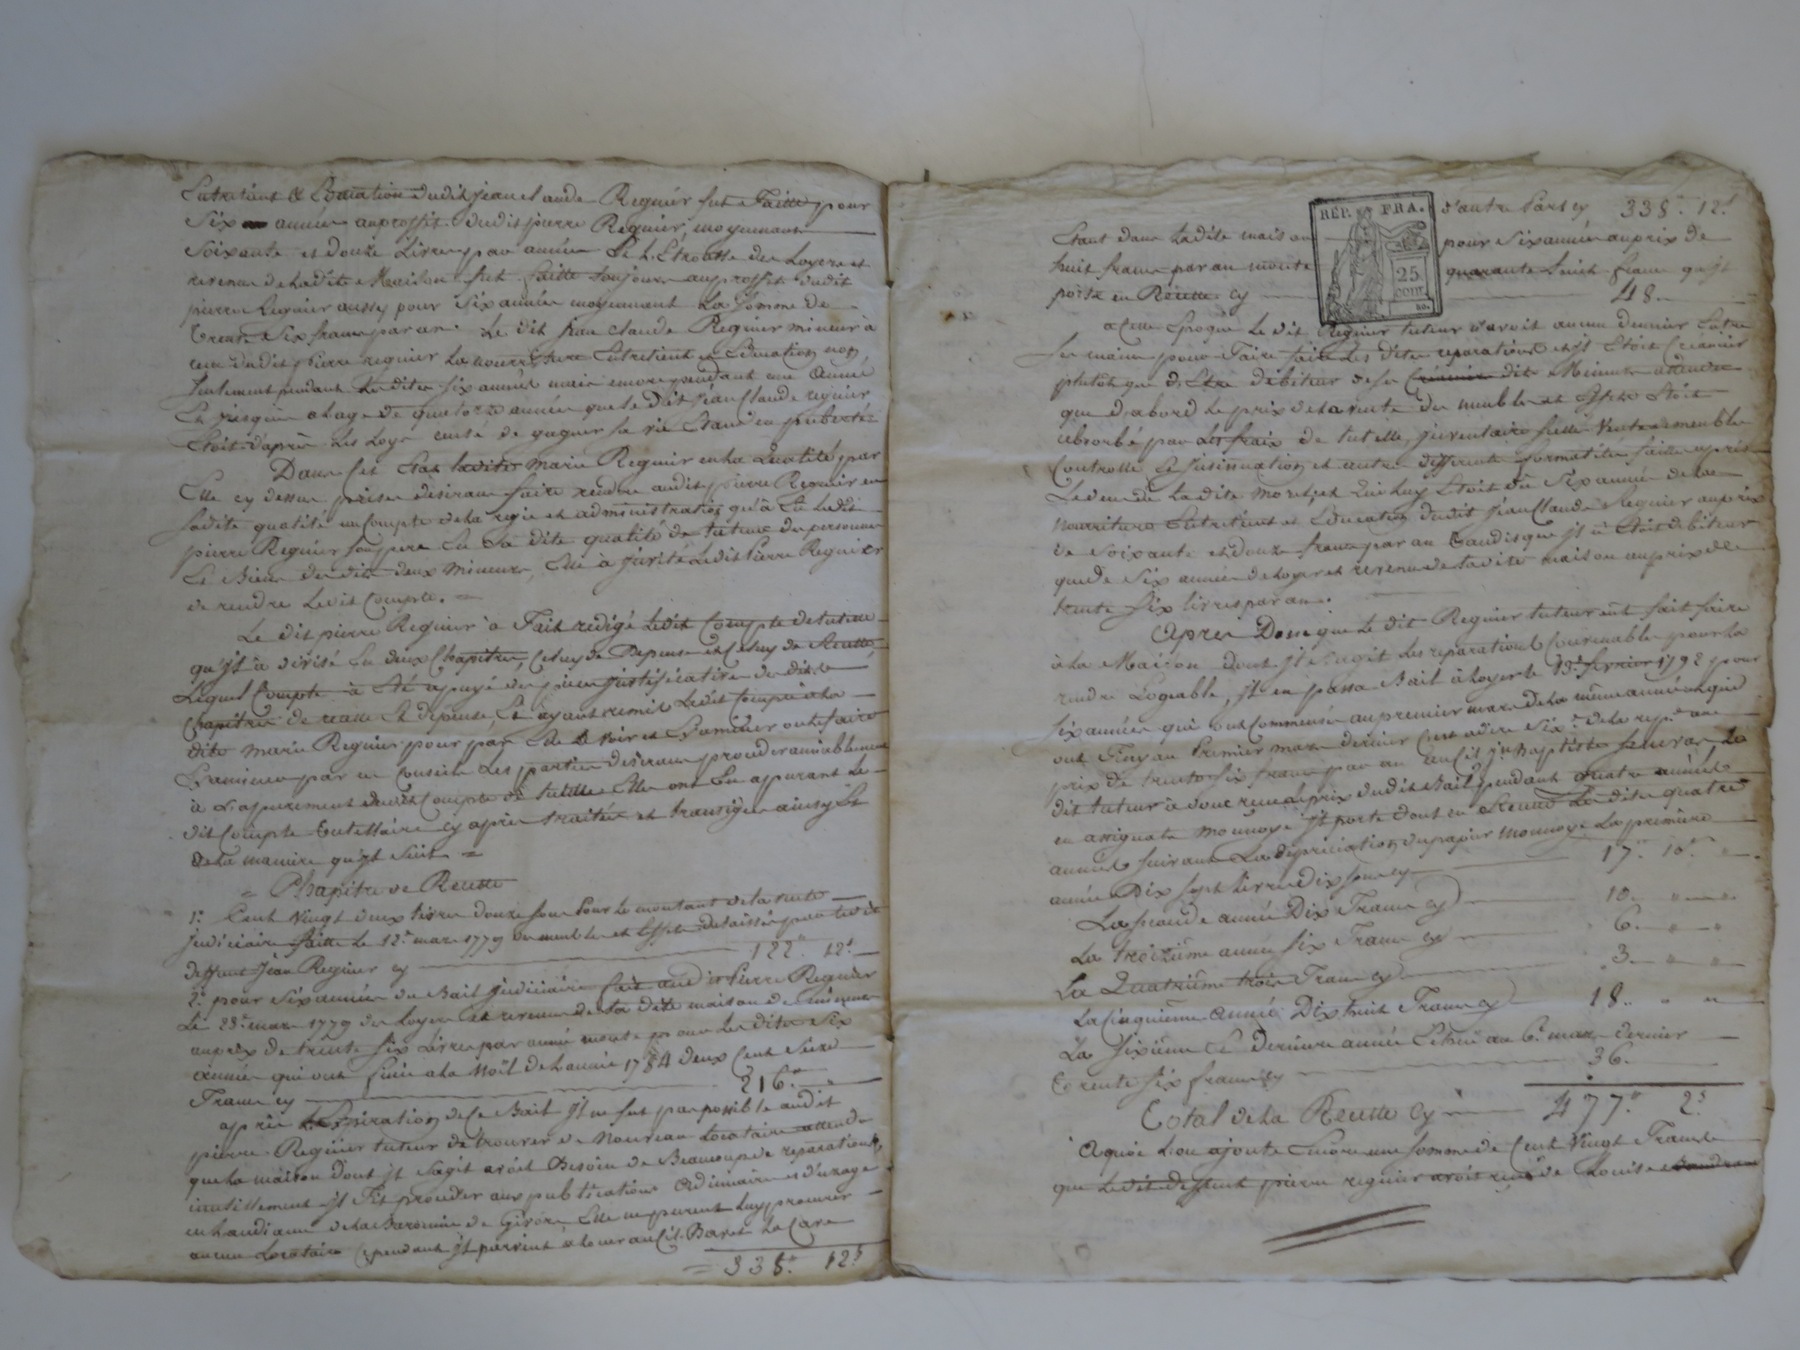 Entretient & Education dudit jean Claude Regnier fut Faitte pour
Six année auproffit dudit pierre Regnier, moyennant
Soixante et douze Livres par année & L'Etrousse des Loyers et
revenus de Ladite Maison fut faitte toujours auproffit dudit
pierre Regnier aussy pour Six année moyennant La Somme de
trente Six francs par an. Le dit jean Claude Regnier mineur à
reçu dudit pierre regnier La nourriture Entretient et Education non
seulement pendant Lesdites Six années mais encore pendant une année
Et jusqu'à alage de quatorze années que le dit jean Claude regnier
Etoit d'après Les Loyx censé de gagner sa vie Etant en puberté
Dans Set Etat Laditte marie Regnier en La qualité par
Elle cy dessus prise desirant faire rendre audit pierre Regnier en
sadite qualité un compte de La regie et administration qu'à Eu Ledit
pierre Regnier Son pere En Sa dite qualité de tuteur des personnes
Et Biens des dits deux mineurs, Elle à jnvité Ledit Pierre Regnier
de rendre Ledit Compte. =
Le dit pierre Regnier à Fait redigé Ledit Compte de tutelle
qu'jl à divisé En deux Chapitres, Celuy de Depense et Celuy de Recette,
Lequel Compte à Eté apuyé des pieces justificatives desdits
Chapitres de recette Et depense, Et ayant remit Ledit Compte à La
dite marie Regnier pour par Elle Le voir et Examiner ou Le faire
Examiner par un Conseil Les parties desirant proceder amiablement
à L'apurement dudit Compte de tutelle Elles ont En apurant Le
dit Compte tutellaire cy après traitée et transigée ainsy Et
de La maniere qu'jl Suit =
= Chapitre de Recette
1.° Cent Vingt deux livres douze sous Pour le montant de la vente
judiciaire faitte Le 12.e mars 1779 des meubles et Effets delaissés par Le dit
deffunt Jean Regnier cy 122.# 12.s
2.° pour Six années du Bail judiciaire fait audit Pierre Regnier
Le 28.e mars 1779 des Loyers et revenus de La dite maison des mineurs
auprix de trente Six Livres par année monte pour Les dites Six
années qui ont fini à La Noël de L'année 1784 deux Cent Seize
Francs cy 216.#
après L'Expiration de Ce Bail jl ne fut pas possible audit
pierre Regnier tuteur de trouver de Nouveau Locataire attendu
que La maison dont jl s'agit avoit Besoin de Beaucoup de reparations,
inutillement jl Fit proceder aux publications ordinaires et d'usage
en Laudiance de La Baronnie de Givors, Elle ne purent Luy procurer
aucun Locataire Cependant jl parvint à Louer au Cit. Baret La Cave
= 338.# 12.s
RÉP. FRA.
25 cent.
d'autre Part cy 338.# 12.s
Etant dans Ladite maison pour Six années auprix de
huit francs par an monte quarante huit francs qu'jl
porte en Recette cy 48.
à Cette Epoque Le dit Regnier tuteur n'avoit aucun denier Entre
Ses mains pour Faire faire Les dites reparations et jl Etoit Creancier
plutôt que d'Etre debiteur de Ses dits Mineurs attendu
que d'abord Le prix de la vente des meubles et Effets Etoit
absorbé par Les fraix de tutelle, jnventaire Susdite Vente de meubles
Controlle et jnsinuation et autres differentes Formatités faites après
Le decés de Ladite Morel, et qui Luy Etoit dû Six années de La
Nourriture Entretient et Education dudit jean Claude Regnier auprix
de Soixante et douze francs par an tandis que jl n'Etoit debiteur
que de Six années de Loyer et revenus de Ladite maison auprix de
trente Six livres par an.
Après Donc que Le dit Regnier tuteur eut fait faire
à La Maison dont jl s'agit Les reparations Convenables pour La
rendre Logeable, jl en passa Bail à Loyer le 13.e fevrier 1792 pour
Six années qui ont Commencées au premier mars de La même année et qui
ont Finy au Premier mars dernier C'est adire Six.e de La rep.e au
prix de trente Six francs par an au Cit. jn Baptiste, Le
dit tuteur à donc reçu Le prix dudit Bail pendant quatre années
en assignats monnoye jl porte dont en Recette Les dites quatre
années Suivant La depreciation du papier Monnoye La premiere
année Dix Sept Livres Dix Sous cy 17.# 10.s
La Seconde année Dix Francs cy 10. " "
La troizième année Six Francs cy 6. " "
La Quatrième trois Francs cy 3. " "
La Cinquième année Dix huit Francs cy 18. " "
La Sixième Et Derniere année Echue au 6.e mars dernier
trente Six francs cy 36.
Total de La Recette cy 477.# 2.s
à quoi L'on ajoute Encore une Somme de Cent Vingt Francs
que Le dit deffunt pierre regnier avoit reçu de Louise